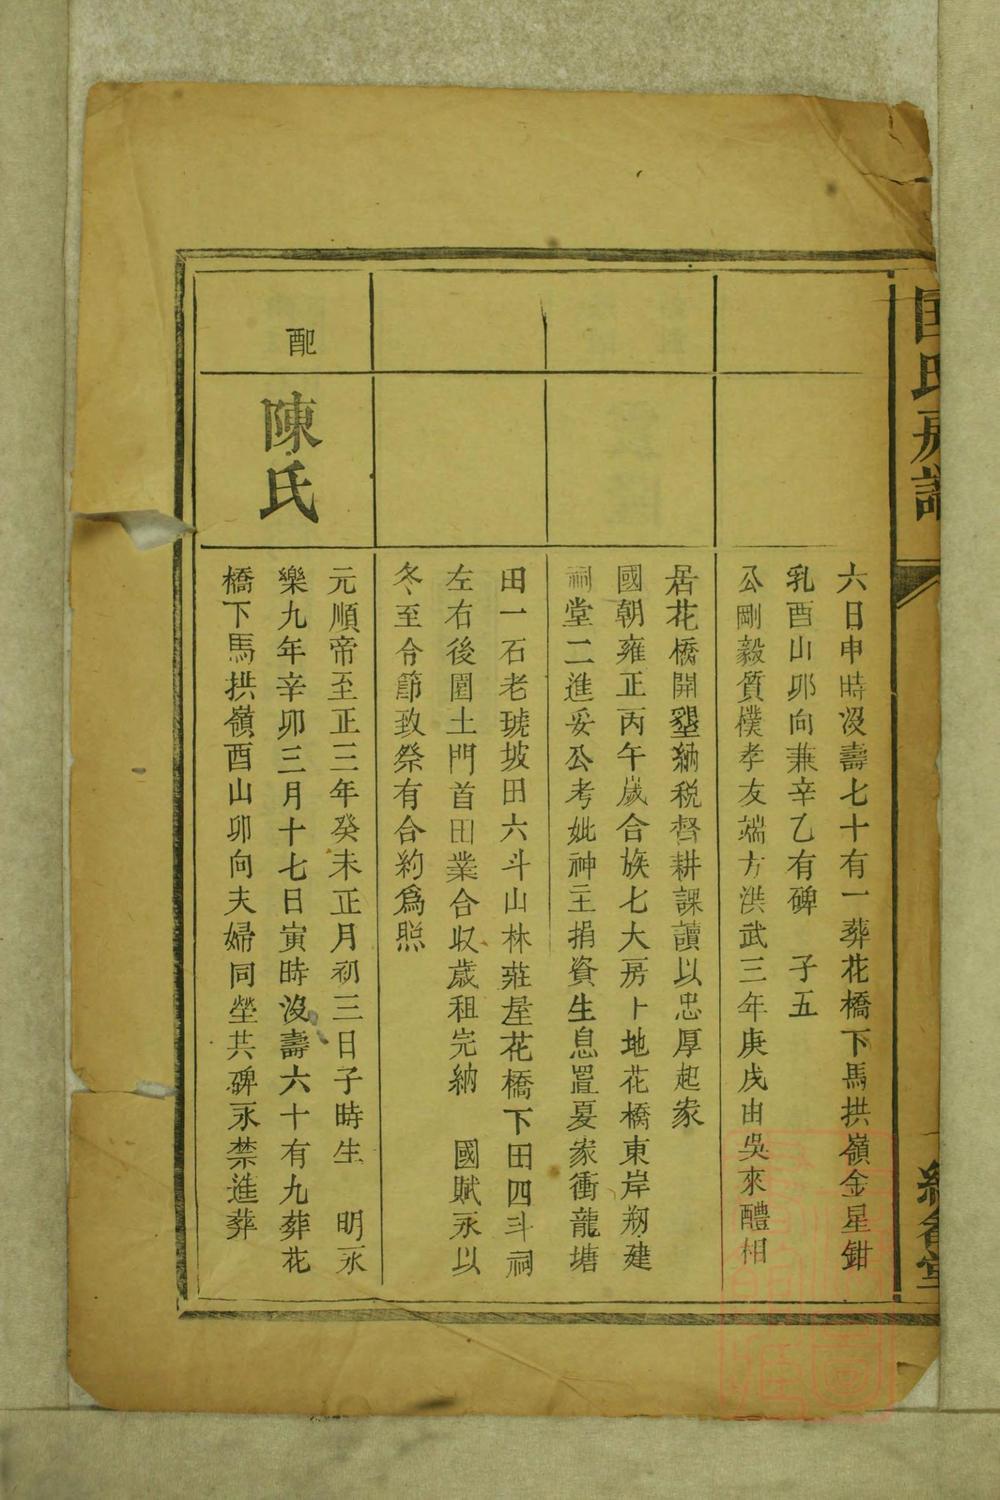 匡氏房譜
六日申時沒壽七十有一葬花橋下馬拱嶺金星鉗
乳酉山卯向兼辛乙有碑　子五
公剛毅質樸孝友端方洪武三年庚戌由吳來醴相
居花橋開墾納稅督耕課讀以忠厚起家
國朝雍正丙午歲合族七大房卜地花橋東岸剏建
祠堂二進妥公考妣神主捐資生息置夏家衝龍塘
田一石老琥坡田六斗山林莊屋花橋下田四斗祠
左右後圍土門首田業合收歲租完納　國賦永以
冬至令節致祭有合約為照
配
陳氏
元順帝至正三年癸未正月初三日子時生　明永
樂九年辛卯三月十七日寅時沒壽六十有九葬花
橋下馬拱嶺酉山卯向夫婦同塋共碑永禁進葬